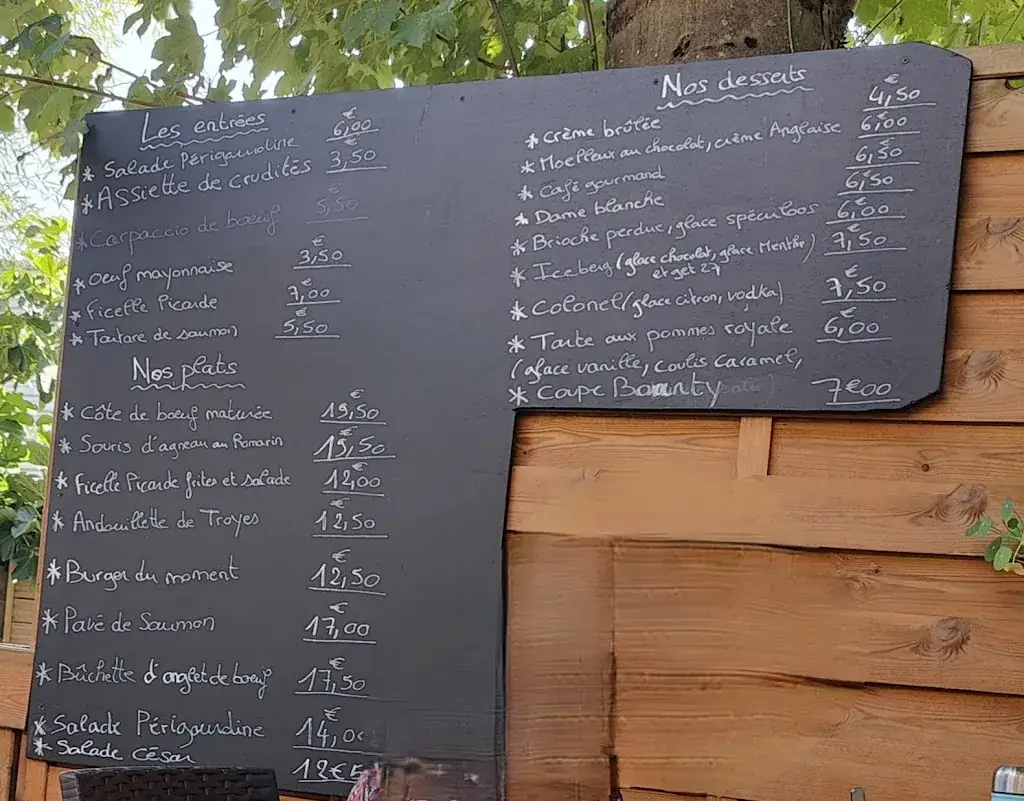 Les entrées
* Salade Périgourdine 6,00 €
* Assiette de crudités 3,50
* Carpaccio de boeuf 5,50
* Oeuf mayonnaise 3,50 €
* Ficelle Picarde 7,00 €
* Tartare de saumon 5,50 €
Nos plats
* Côte de boeuf maturée 19,50 €
* Souris d'agneau au Romarin 19,50 €
* Ficelle Picarde frites et salade 12,00 €
* Andouillette de Troyes 12,50 €
* Burger du moment 12,50 €
* Pavé de Saumon 17,00 €
* Bûchette d'onglet de boeuf 17,50 €
* Salade Périgourdine 14,00 €
* Salade César 12€5
Nos desserts
* Crème brûlée 4,50 €
* Moelleux au chocolat, crème Anglaise 6,00 €
* Café gourmand 6,50 €
* Dame blanche 6,50 €
* Brioche perdue, glace spéculoos 6,00 €
* Iceberg (glace chocolat, glace Menthe 7,50 €
et get 27)
* Colonel (glace citron, vodka) 7,50 €
* Tarte aux pommes royale 6,00 €
(glace vanille, coulis Caramel,
* Coupe Bounty 7€00